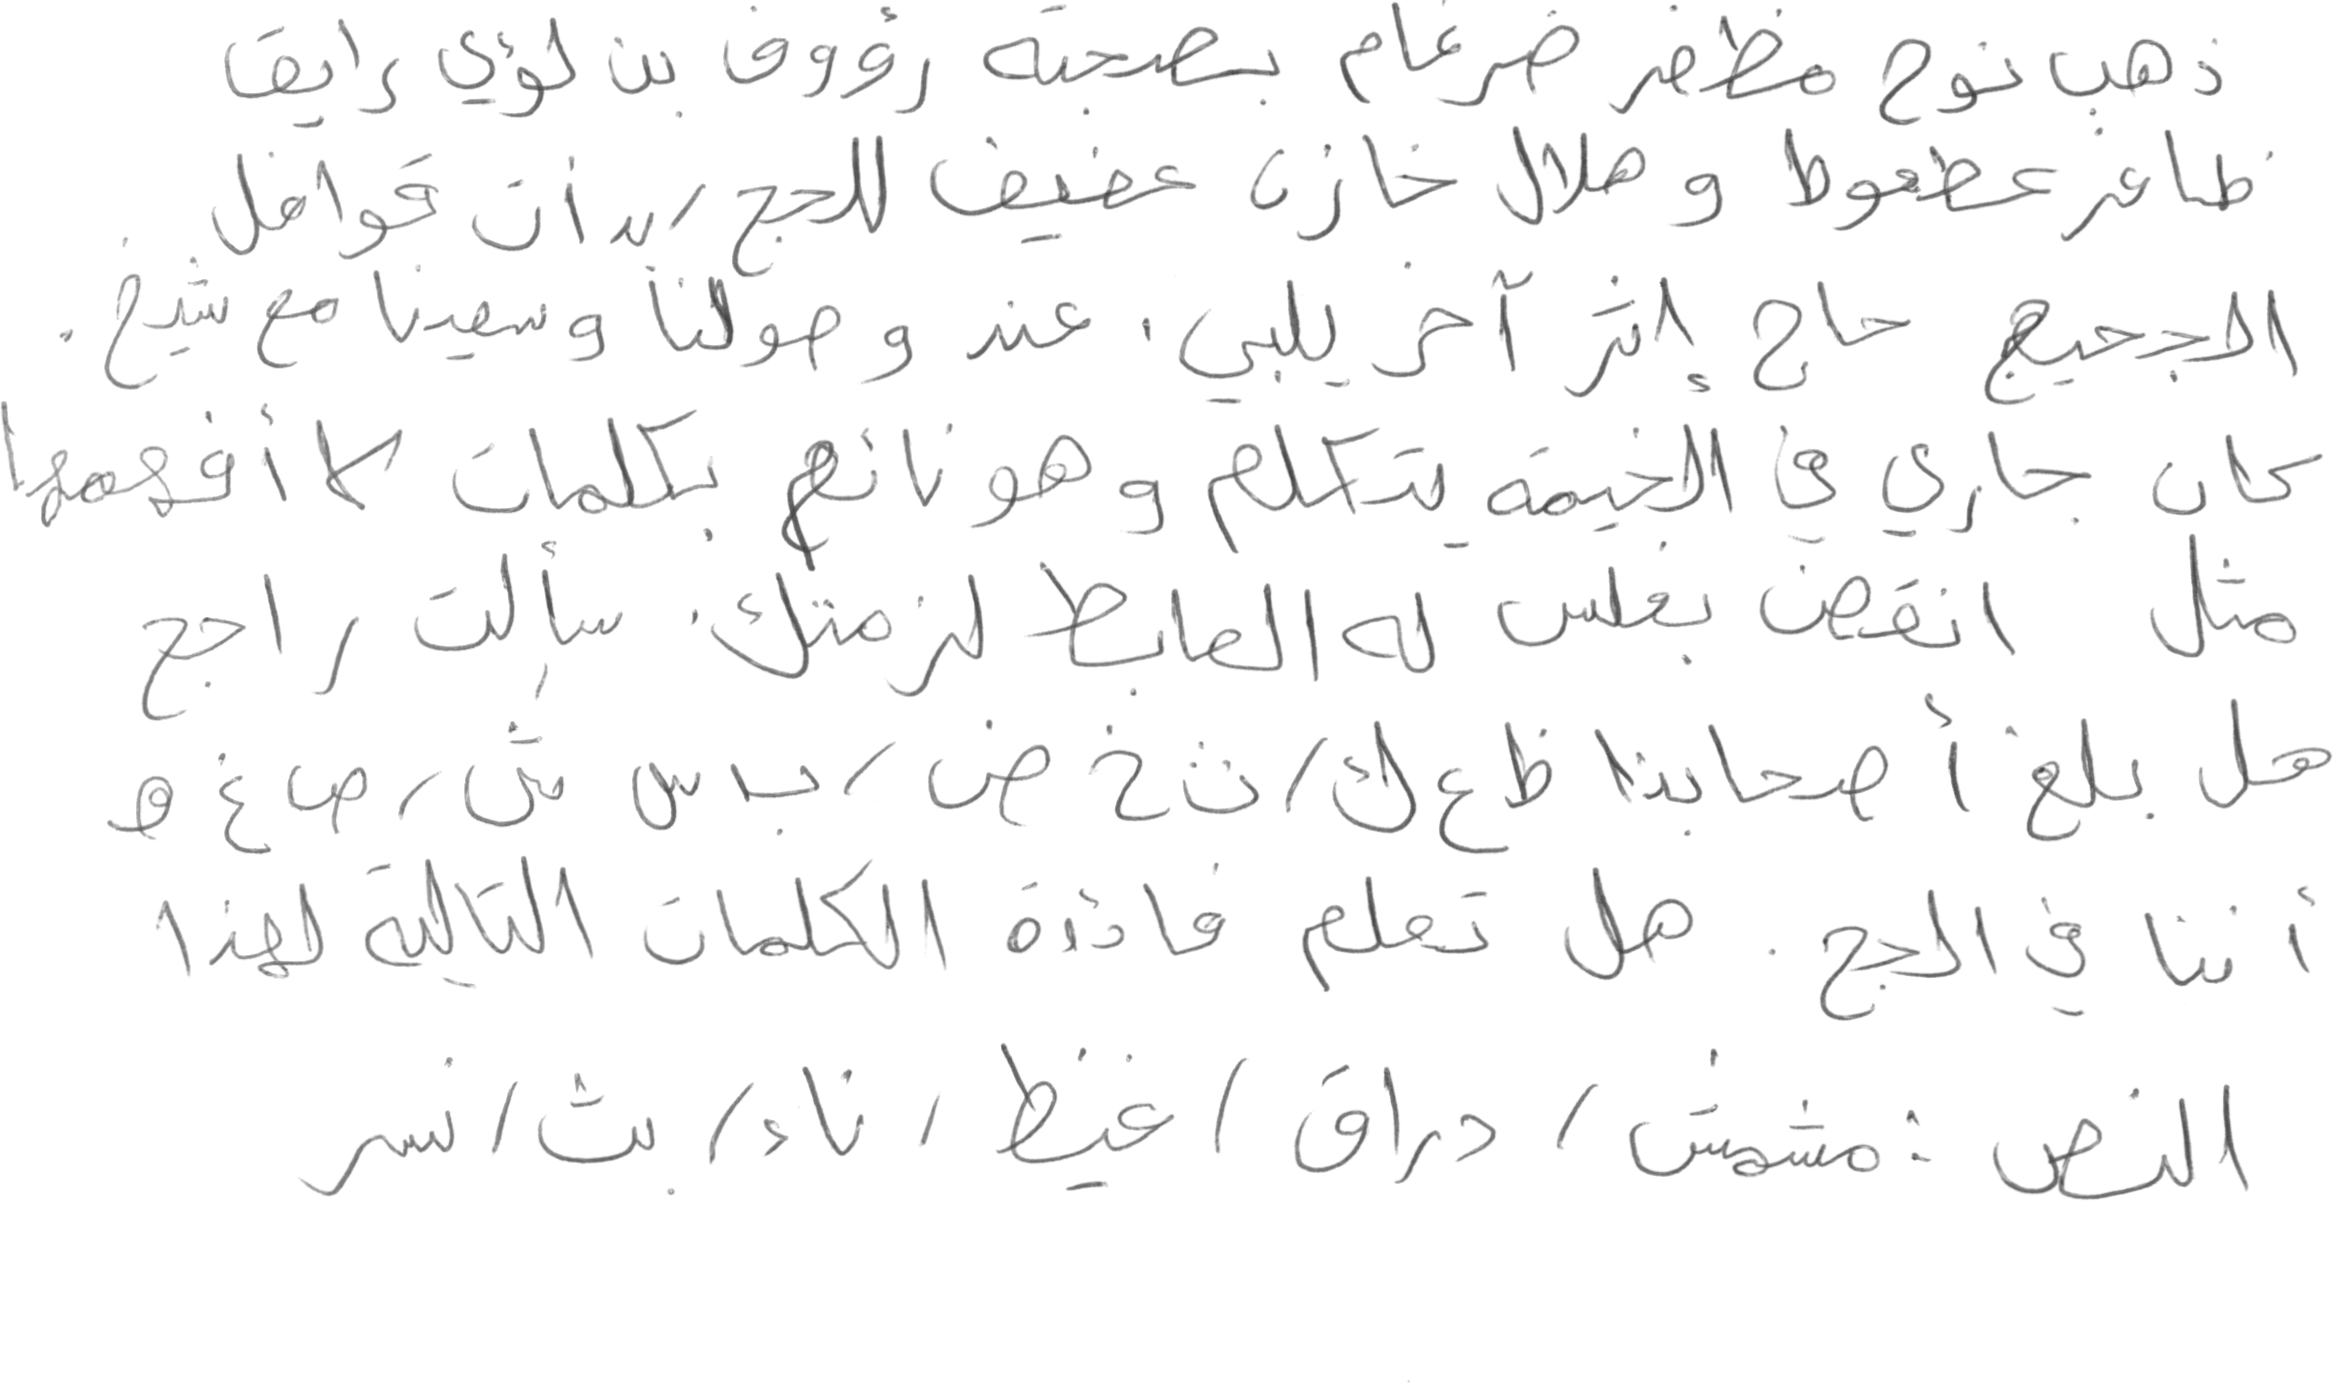 ذهب نوح مظفر ضرغام بصحبة رؤوف بن لؤي رايقا
ظافر عطعوط و هلال خازن عفيف للحج، بدأت قوافل
الحجيج حاج إثر آخر يلبي، عند وصولنا وسعينا مع شيخ.
كان جاري في الخيمة يتكلم وهو نائم بكلمات لا أفهمها
مثل انقض بغلس له الهابط لزمتك. سألت راجح
هل بلغ أصحابنا ظ ع ك، ث خ ض، ب س ش، ص غ ه
أننا في الحج. هل تعلم فائدة الكلمات التالية لهذا
النص: مشمش، دراق، غيظ، ناء، بث، نسر